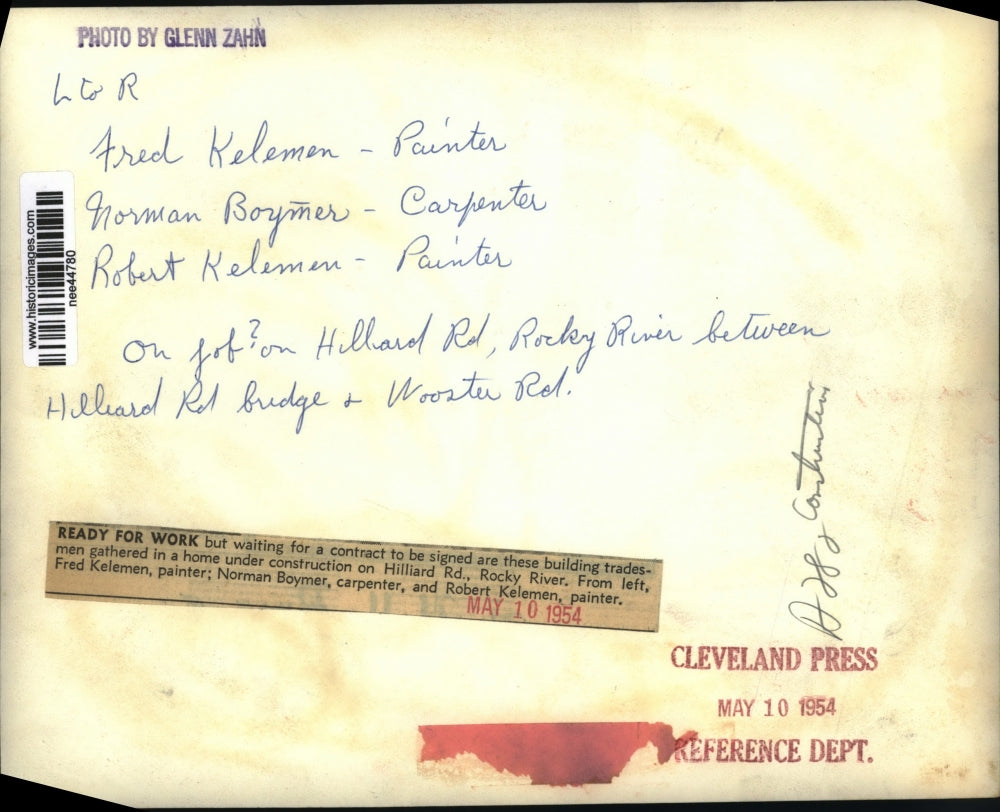 PHOTO BY GLENN ZAHN
L to R
Fred Kelemen - Painter
Norman Boymer - Carpenter
Robert Kelemen - Painter
On job? on Hilliard Rd, Rocky River between
Hilliard Rd bridge & Wooster Rd.
www.historicimages.com
nee44780
Construction
READY FOR WORK but waiting for a contract to be signed are these building trades-
men gathered in a home under construction on Hilliard Rd., Rocky River. From left,
Fred Kelemen, painter; Norman Boymer, carpenter, and Robert Kelemen, painter.
MAY 10 1954
CLEVELAND PRESS
MAY 10 1954
REFERENCE DEPT.